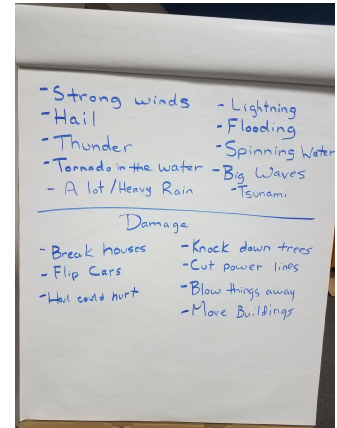 - Strong winds
- Hail
- Thunder
- Tornado in the water
- A lot / Heavy Rain
- Lightning
- Flooding
- Spinning Water
- Big Waves
- Tsunami
Damage
- Break houses
- Flip Cars
- Hail could hurt
- Knock down trees
- Cut power lines
- Blow things away
- Move Buildings